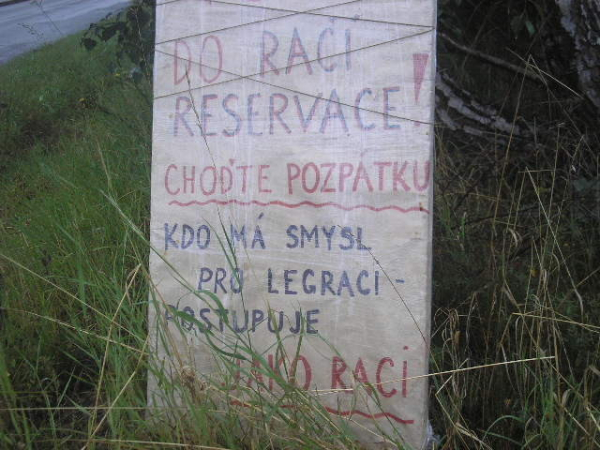 DO RAČÍ
RESERVACE!
CHOĎTE POZPÁTKU
KDO MÁ SMYSL
PRO LEGRACI -
POSTUPUJE
JAKO RACI